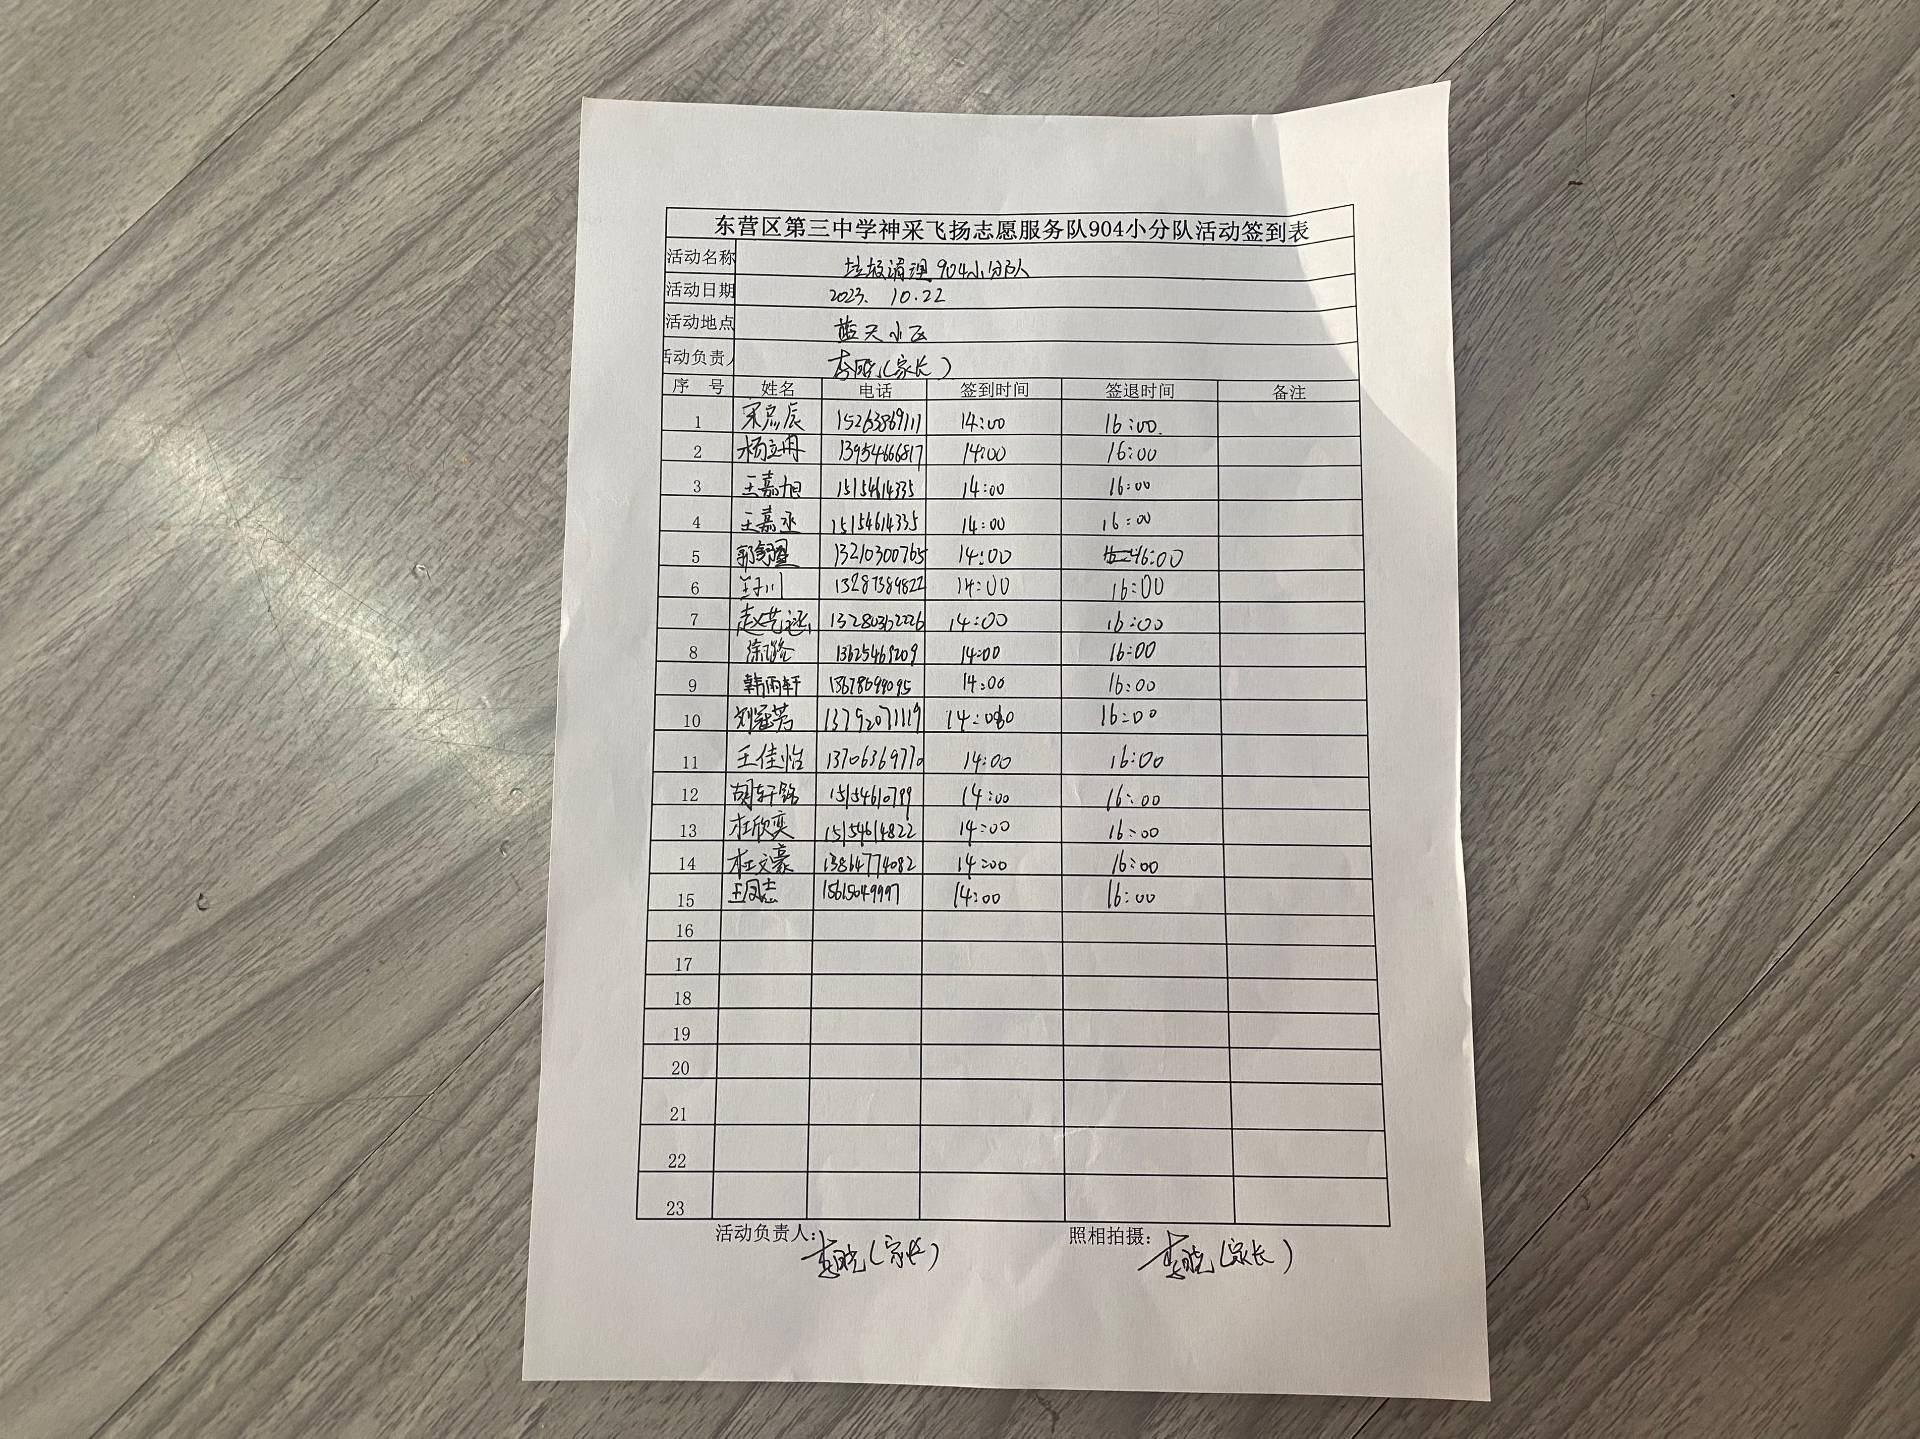 东营区第三中学神采飞扬志愿服务队904小分队活动签到表
活动名称 垃圾清理904小分队
活动日期 2023. 10.22
活动地点 蓝天小区
活动负责人 李晓(家长)
序 号 姓名 电话 签到时间 签退时间 备注
1 15263869111 14:00 16:00.
2 杨立冉 13954666817 14:00 16:00
3 王嘉旭 15154614335 14:00 16:00
4 王嘉丞 15154614335 14:00 16:00
5 13210300765 14:00 16:00
6 13287389822 14:00 16:00
7 赵艺涵 13280362226 14:00 16:00
8 13625469209 14:00 16:00
9 韩雨轩 14:00 16:00
10 刘冠芳 13792071119 14:00 16:00
11 王佳怡 13706369770 14:00 16:00
12 胡轩铭 15154610799 14:00 16:00
13 杜欣奕 15154614822 14:00 16:00
14 杜文豪 13864774082 14:00 16:00
15 14:00 16:00
16
17
18
19
20
21
22
23
活动负责人: 李晓(家长) 照相拍摄: 李晓(家长)